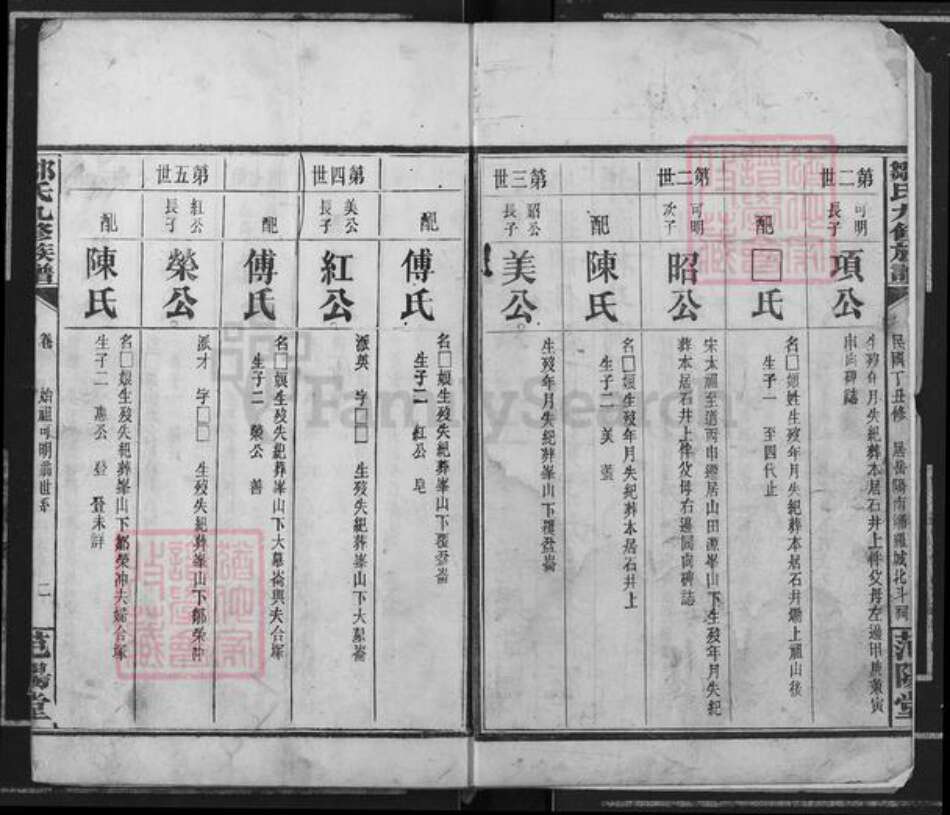 鄒氏九修族譜
民國丁丑修
范陽堂
第二世
可明
長子
項公
生歿年月失紀葬本居石井上伴父母左邊甲庚兼寅
申向碑誌
配
□氏
名□娘姓生歿年月失紀葬本居石井壠上祖山後
生子一 至四代止
第二世
可明
次子
昭公
宋太祖至道丙申遷居山田源峯山下生歿年月失紀
葬本居石井上伴父母右邊同向碑誌
配
陳氏
名□娘生歿年月失紀葬本居石井上
生子二 美
第三世
昭公
長子
美公
生歿年月失紀葬峯山下覆
配
傅氏
名□娘生歿失紀葬峯山下覆
生子二 紅公 皂
第四世
美公
長子
紅公
派英 字□□ 生歿失紀葬峯山下大墓崙
配
傅氏
名□娘生歿失紀葬峯山下大墓崙與夫合塚
生子二 榮公 善
第五世
紅公
長子
榮公
派才 字□□ 生歿失紀葬峯山下鄒榮沖
配
陳氏
名□娘生歿失紀葬峯山下鄒榮沖夫婦合塚
生子二 惠公 登 登未詳
鄒氏九修族譜
卷 始祖可明翁世系 二
范陽堂
FamilySearch